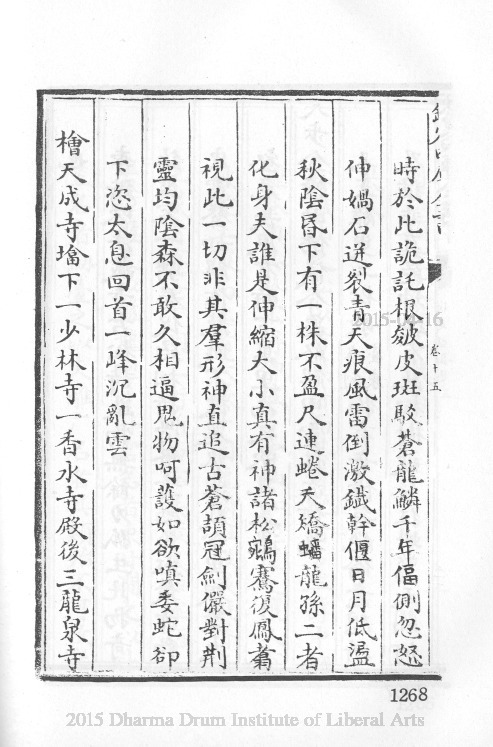 欽定四庫全書
卷十五
時於此詭託根皴皮斑駁蒼龍鱗千年偪側忽怒
伸媧石迸裂青天痕風雷倒激鐵幹偃日月低盪
秋陰昏下有一株不盈尺連蜷夭矯蟠龍孫二者
化身夫誰是伸縮大小真有神諸松鵷騫復鳳翥
視此一切非其羣形神直追古蒼頡冠劍儼對荆
靈均陰森不敢久相逼鬼物呵護如欲嗔委蛇卻
下恣太息回首一峰沉亂雲
檜天成寺墖下一少林寺一香水寺殿後三龍泉寺
1268
2015 Dharma Drum Institute of Liberal Arts